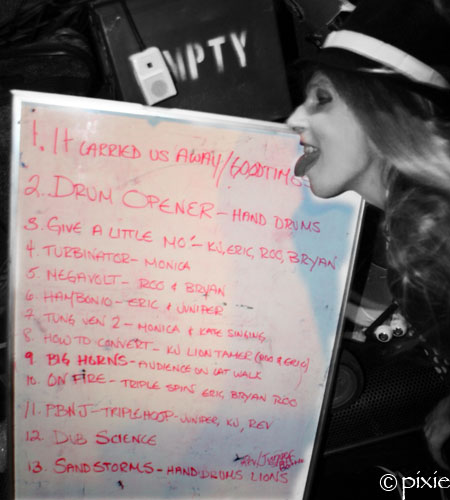 MPTY
1. It CARRIED US AWAY/GOODTIMES
2. DRUM OPENER - HAND DRUMS
3. GIVE A LITTLE MO' - KU, ERIC, ROO, BRYAN
4. TURBINATOR - MONICA
5. MEGAVOLT - ROO & BRYAN
6. HAMBONIO - ERIC & JUNIPER
7. TUNG VEN 2 - MONICA & KATE SINGING
8. HOW TO CONVERT - KU LION TAMER (ROO & ERIC)
9. BIG HORNS - AUDIENCE ON CAT WALK
10. ON FIRE - TRIPLE SPIN ERIC, BRYAN ROO
11. PBNJ - TRIPLE HOOP - JUNIPER, KU, REV
12. DUB SCIENCE
13. SANDSTORMS - HAND DRUMS LIONS
© pixie